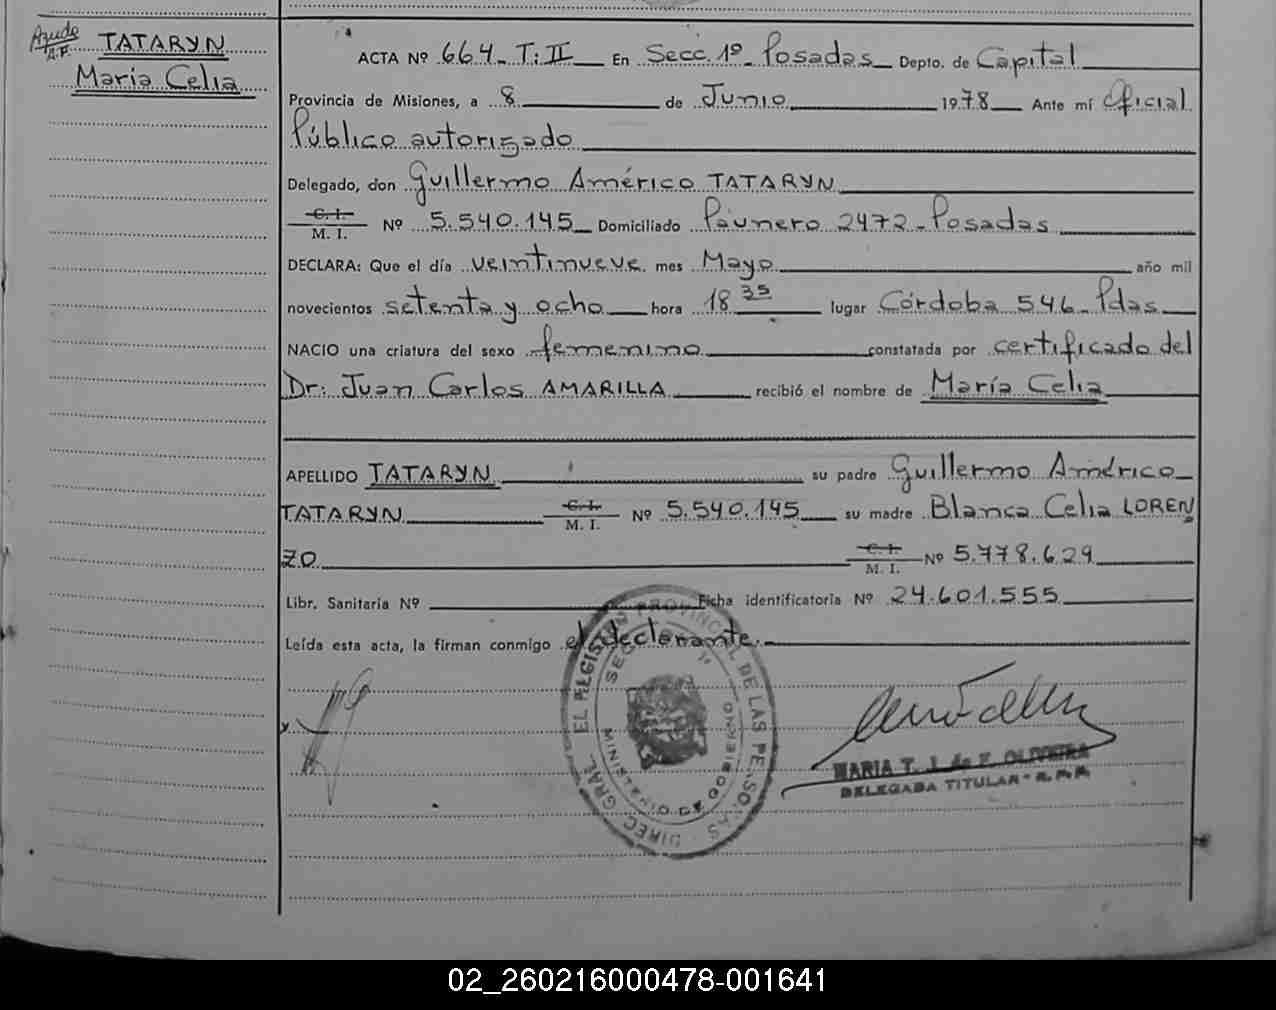 Ayude
TATARYN
María Celia
ACTA Nº 664 - T: II En Secc. 1º Posadas Depto. de Capital
Provincia de Misiones, a 8 de Junio 1978 Ante mí Oficial
Público autorizado
Delegado, don Guillermo Américo TATARYN
C. I.
M. I. Nº 5.540.145 Domiciliado Paunero 2472 - Posadas
DECLARA: Que el día veintinueve mes Mayo año mil
novecientos setenta y ocho hora 18 35 lugar Córdoba 546 - Pdas
NACIO una criatura del sexo femenino constatada por certificado del
Dr: Juan Carlos AMARILLA recibió el nombre de María Celia
APELLIDO TATARYN su padre Guillermo Américo
TATARYN C. I. M. I. Nº 5.540.145 su madre Blanca Celia LOREN
ZO C. I. M. I. Nº 5.778.629
Libr. Sanitaria Nº Ficha identificatoria Nº 24.601.555
Leída esta acta, la firman conmigo el declarante.
DIREC. GRAL. DEL REGISTRO PROVINCIAL DE LAS PERSONAS
SECC. 1º
MINISTERIO DE GOBIERNO
MARIA T. J. de F. OLIVEIRA
DELEGADA TITULAR - R. P. P.
02_260216000478-001641